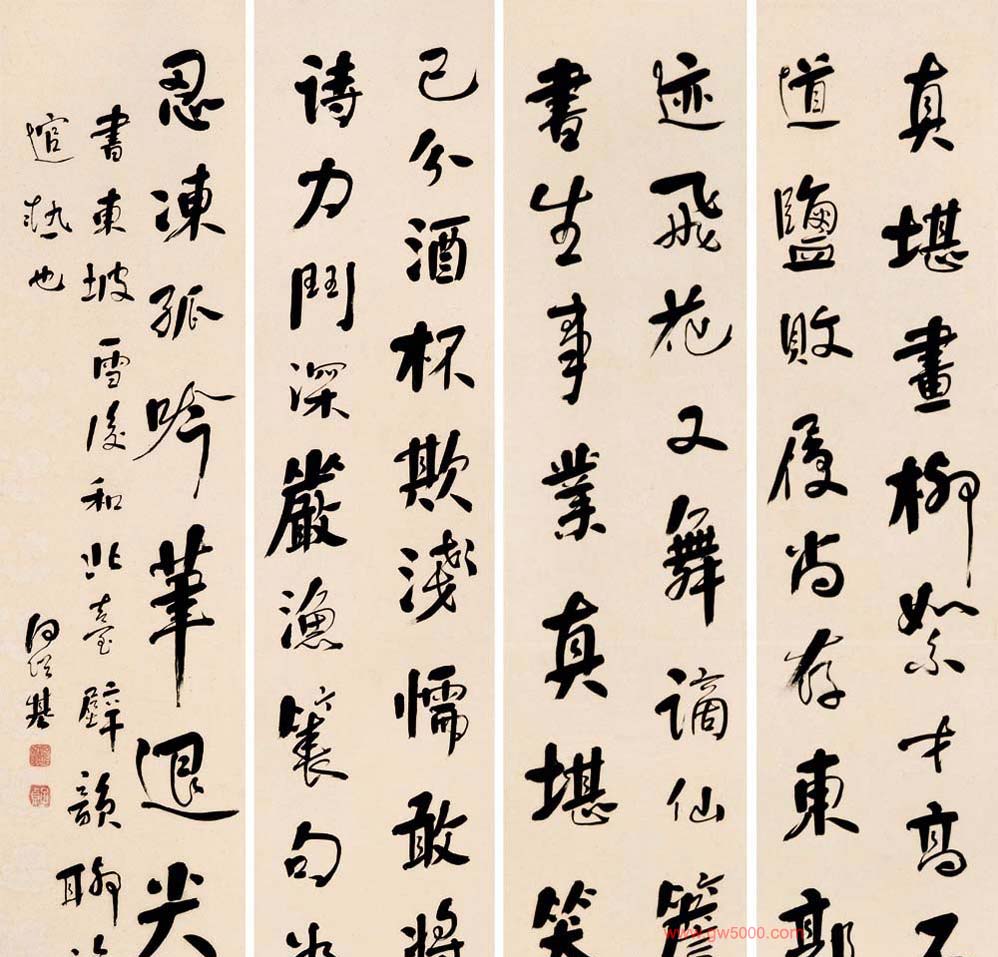 真堪畫柳絮才高不
道鹽敗履尚存東郭
迹飛花又舞謫仙簷
書生事業真堪笑
已分酒杯欺淺懦敢將
詩力鬥深嚴漁簑句
忍凍孤吟筆退尖
書東坡雪後和北臺壁韻聊
逭熱也
何紹基
www.gw5000.com